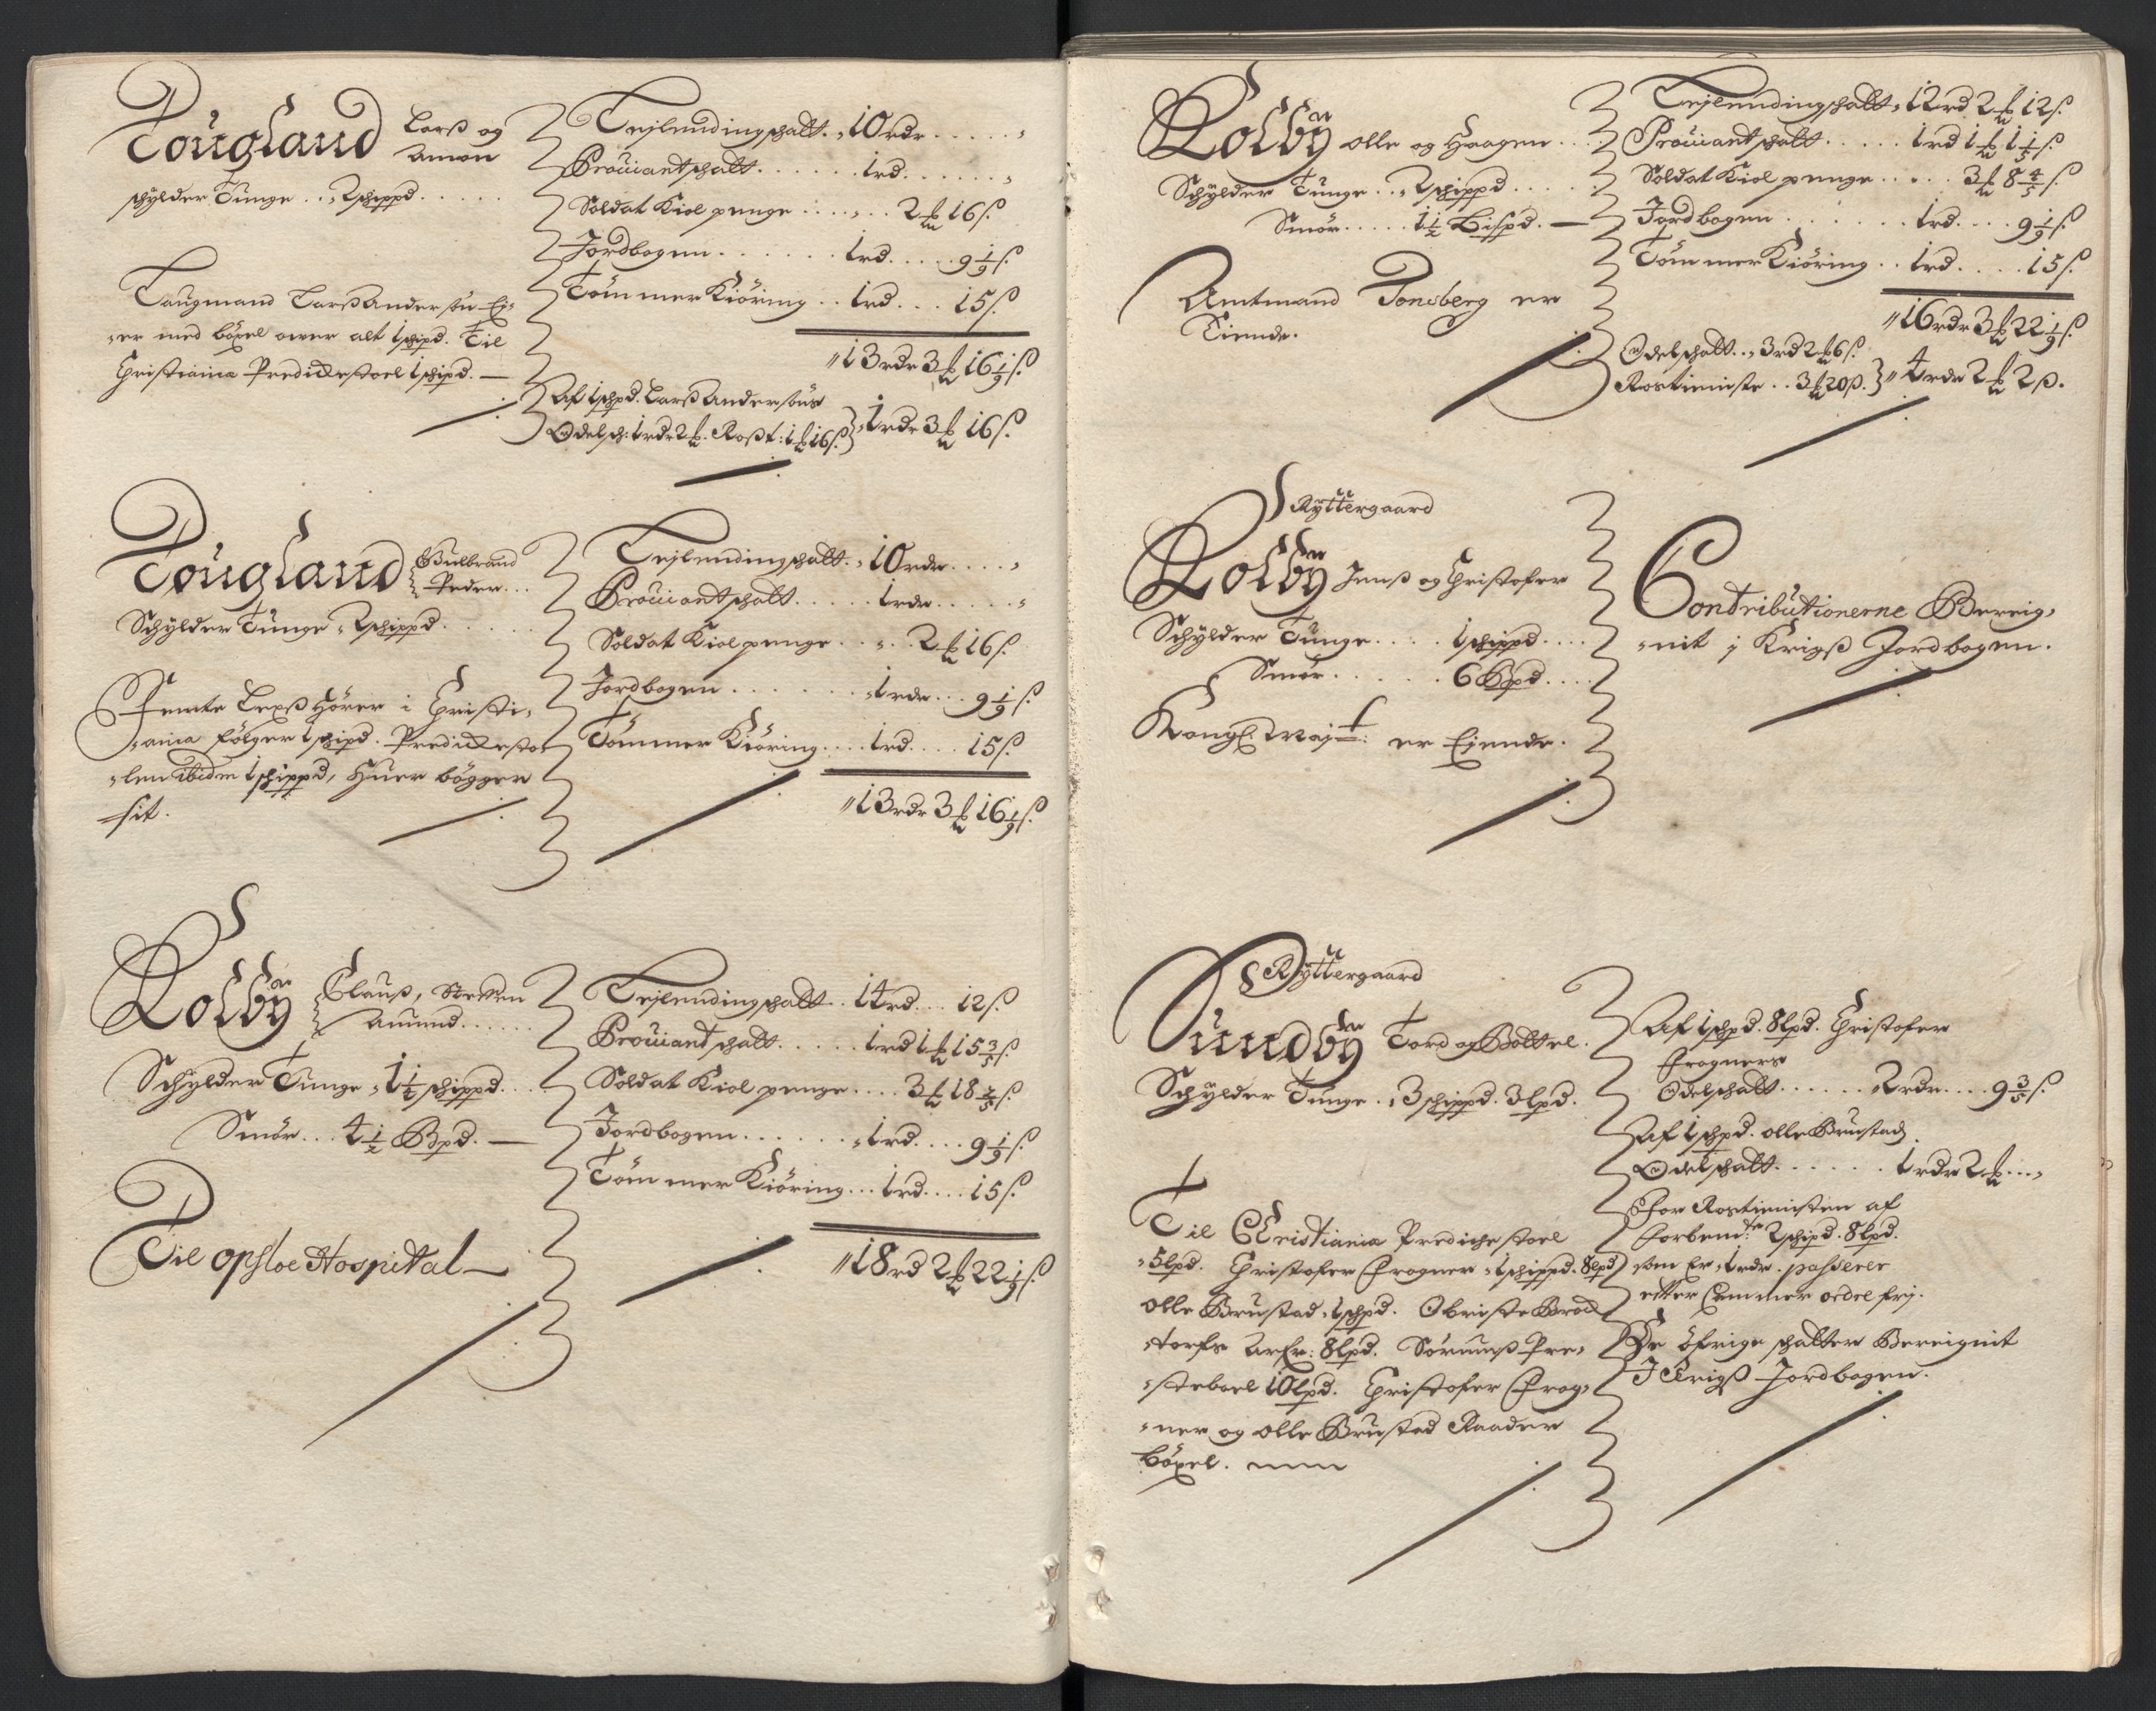 Tougland Larß og
Amon
schylder Tunge .. 2 schippd.
Laugmand Larß Andersøn Ej-
er med böxel ower alt 1 schipd. Til
Christiania Predickestoel 1 schipd.
Lejlendingschatt. 10 rdr
Prouiantschatt 1 rd
Soldat Kiol penge 2 ℔ 16 ß.
Jordbogen 1 rd 9 1/9 ß.
Tömmer Kiöring 1 rd 15 ß.
13 rdr 3 ℔ 16 1/9 ß.
Af 1 schpd. Larß Andersøns
Odelsch: 1 rdr 2 ℔. Roßt: 1 ℔ 16 ß. 1 rdr 3 ℔ 16 ß.
Tougland Gulbrand
Peder
Schylder Tunge 2 schippd.
Femte Lexß Hörer i Christi-
ania følger 1 schipd. Predickesto-
len ibidem 1 schippd, Huer bögger
sit.
Lejlendingschatt. 10 rdr
Prouiantschatt 1 rdr
Soldat Kiol penge 2 ℔ 16 ß.
Jordbogen 1 rdr 9 1/9 ß.
Tömmer Kiöring 1 rd 15 ß.
13 rdr 3 ℔ 16 1/9 ß.
Kolbÿ Clauß, Steffen
Amund
Schylder Tunge 1 1/4 schippd.
Smör 4 1/2 Bpd.
Til opsloe Hospital
Lejlendingschatt 14 rd 12 ß.
Prouiantschatt 1 rd 1 ℔ 15 3/5 ß.
Soldat Kiol penge 3 ℔ 18 2/5 ß.
Jordbogen 1 rd 9 1/9 ß.
Tömmer Kiöring 1 rd 15 ß.
18 rd 2 ℔ 22 1/9 ß.
Kolbÿ olle og Haagen
Schylder Tunge 2 schippd
Smör 1 1/2 Bispd.
Amtmand Tonsberg er
Eiende.
Lejlendingschatt 12 rd 2 ℔ 12 ß.
Prouiantschatt 1 rd 1 ℔ 1 1/5 ß.
Soldat Kiol penge 3 ℔ 8 4/5 ß.
Jordbogen 1 rd 9 1/9 ß.
Tömmer Kiöring 1 rd 15 ß.
16 rdr 3 ℔ 22 1/9 ß.
Odelschatt 3 rd 2 ℔ 6 ß.
Rostieniste 3 ℔ 20 ß. 4 rdr 2 ℔ 2 ß.
Ryttergaard
Kolbÿ Jenß og Christofer
Schylder Tunge 1 schippd
Smör 6 Bpd
Kongl. Mayt: er Eiende.
Contributionerne Bereig-
nit j Krigß Jordbogen.
Ryttergaard
Sundbÿ Tord og Bottel.
Schylder Tunge 3 schippd. 3 lpd.
Til Christiania Prediche stoel
5 lpd. Christofer Frogner 1 schippd. 8 lpd
olle Brustad 1 schpd. Obriste Brock
torfs Arfv: 8 lpd. Sörumß Pre-
steboel 10 lpd. Christofer Frog-
ner og olle Brustad Raader
böxel.
Af 1 schpd. 8 lpd. Christofer
Frogners
Odelschatt 2 rdr 9 3/5 ß.
Af 1 schpd. olle Brustad
Odelschatt 1 rdr 2 ℔
For Rostienisten af
Forbem:te 2 schipd. 8 lpd.
som Er 1 rdr. passerer
effter Cammer ordre frj.
De öfrige schatter Bereignit
I Krigß Jordbogen.